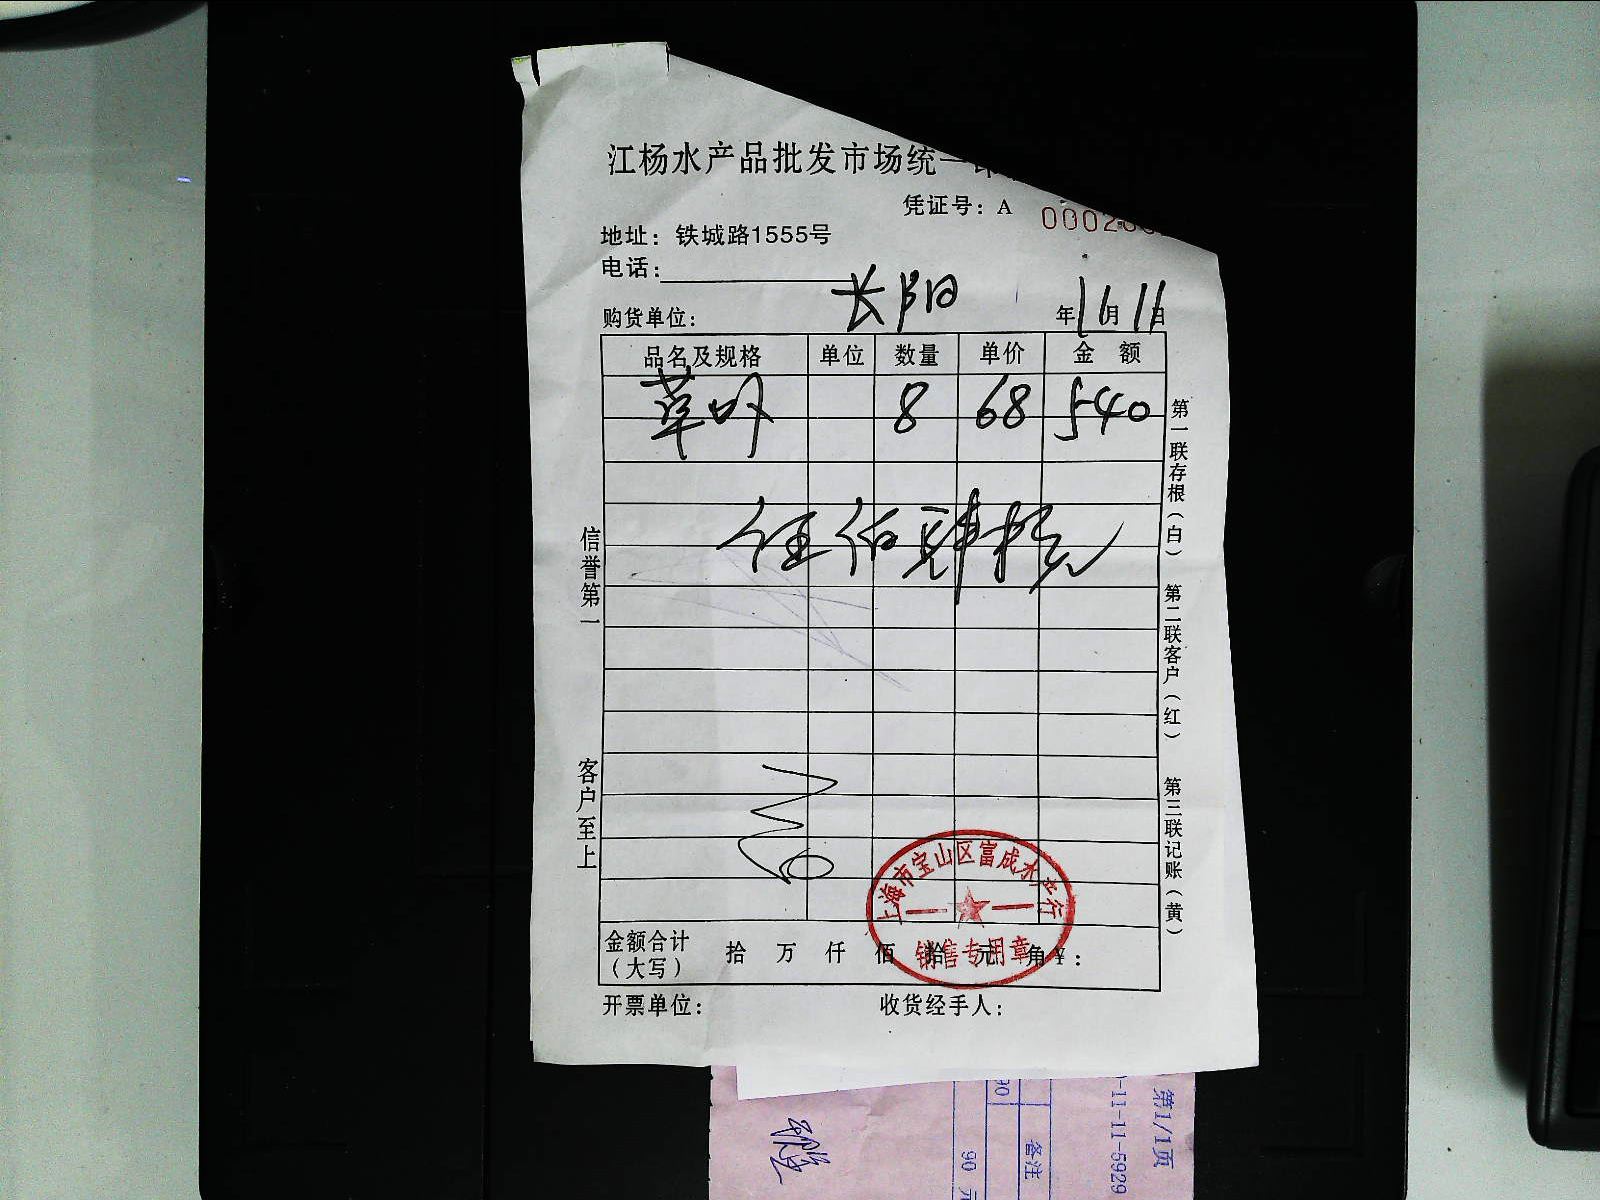 江杨水产品批发市场统一
凭证号：A 0002
地址：铁城路1555号
电话：
购货单位： 长阳 年 11月 11日
品名及规格 单位 数量 单价 金 额
草 8 68 540
伍佰肆拾元
信誉第一
客户至上
第一联存根（白） 第二联客户（红） 第三联记账（黄）
上海市宝山区富成水产行
销售专用章
金额合计（大写） 拾 万 仟 佰 拾 元 角 ¥：
开票单位： 收货经手人：
第1/1页
-11-11-5929
备注
90
90 元